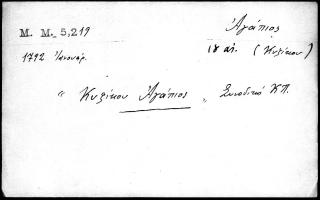 Μ. Μ. 5,219 Ἀγάπιος
18 αἰ. (Κυζίκου)
1792 Ἰανουάρ.
" Κυζίκου Ἀγάπιος " Συνοδικό ΚΠ.